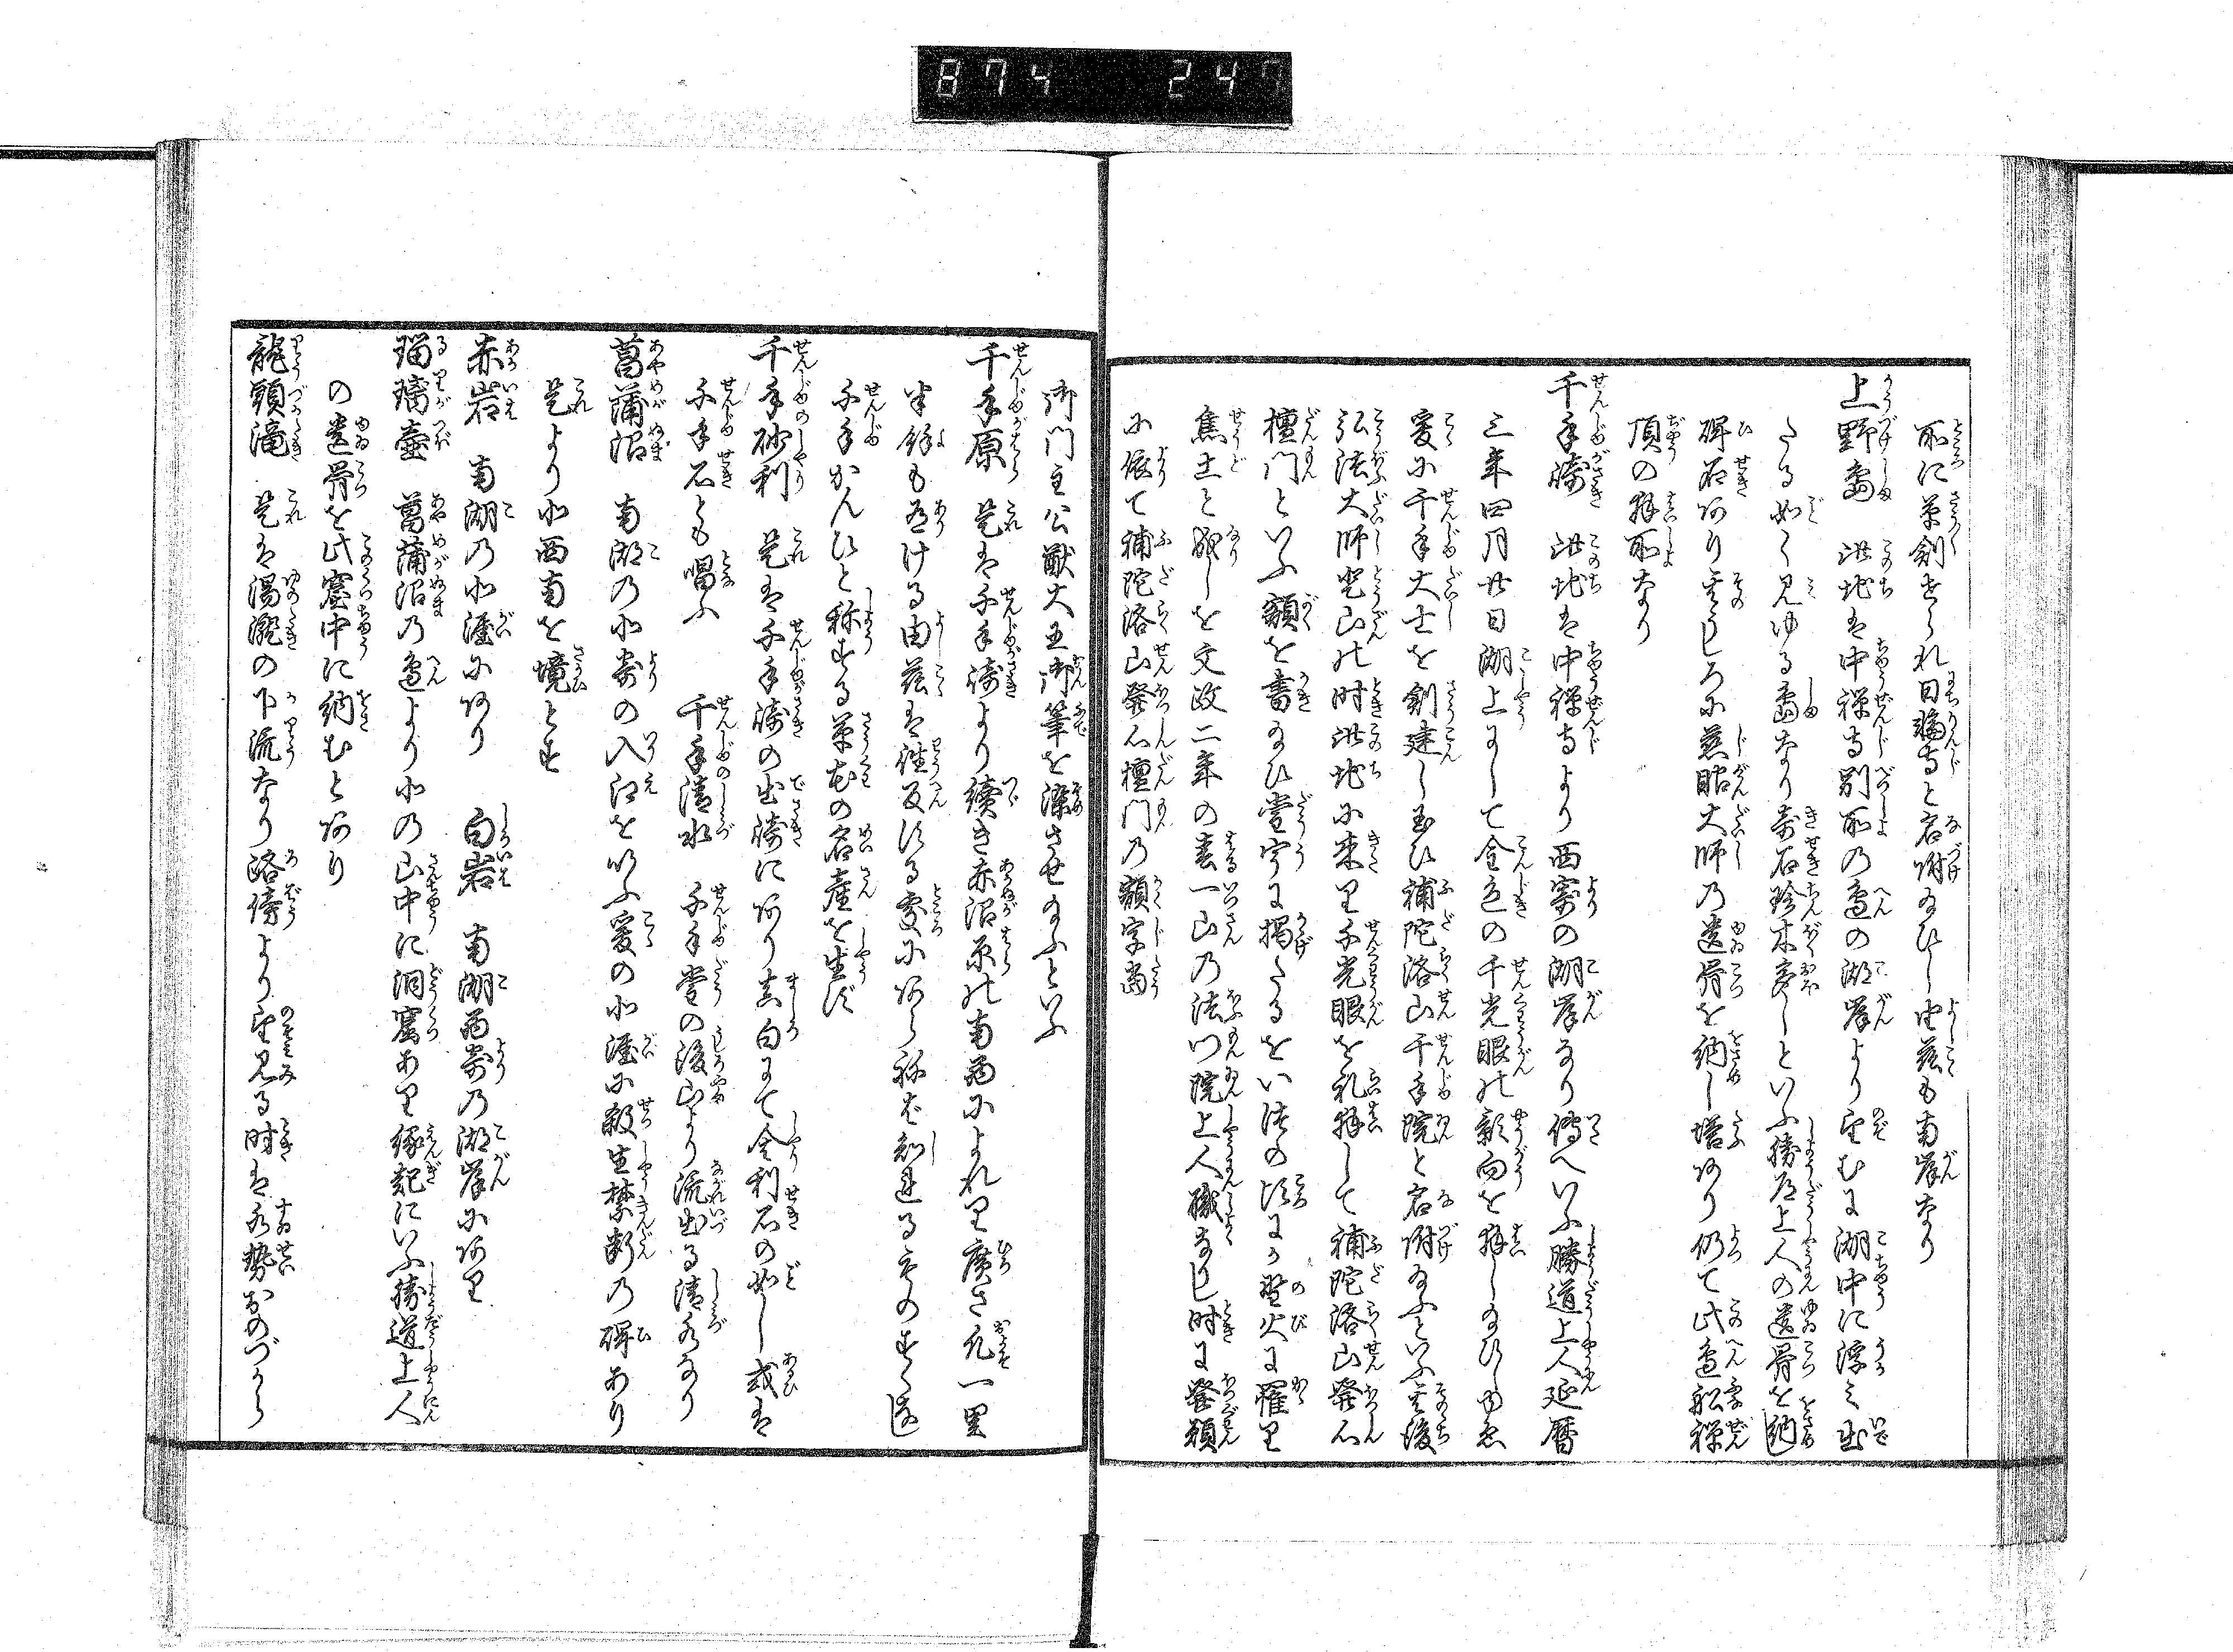 874 247
所に草創せられ日輪寺と名附給ひし由茲も南岸なり
上野島 此地は中禅寺別所の辺の湖岸より望むに湖中に浮み出
たる如く見ゆる島なり奇石珍木多しといふ勝道上人の遺骨を納し
碑石あり其うしろに慈眼大師の遺骨を納し塔あり仍て此辺船禅
頂の拝所なり
千手崎 此地は中禅寺より西寄の湖岸なり傳へいふ勝道上人延暦
三年四月廿日湖上にして金色の千光眼の影向を拝し給ひしゆゑ
爰に千手大士を創建し玉ひ補陀洛山千手院と名附給ふといふ其後
弘法大師登山の時此地に来り千光眼を礼拝して補陀洛山発心
檀門といふ額を書給ひ堂宇に掲たるをいつの頃にか野火に罹り
焦土と成しを文政二年の春一山の法門院上人職なりし時に発願
に依て補陀洛山発心檀門の額字当
御門主公猷大王御筆を染させ給ふといふ
千手原 是は千手崎より續き赤沼原の南西によれり廣さ凡一里
半餘も有ける由茲は往反する處にあらねば知れる人のすくなし
千手がんひと称する草花の名産を生ず
千手砂利 是は千手崎の出崎にあり真白にて舎利石の如し或は
千手石とも唱ふ 千手清水 千手堂の後山より流出る清水なり
菖蒲沼 南湖の北寄の入江をいふ爰の北涯に殺生禁断の碑あり
是より北西南を境とす
赤岩 南湖の北涯にあり 白岩 南湖西寄の湖岸にあり
瑠璃壺 菖蒲沼の辺より北の山中に洞窟あり縁起にいふ勝道上人
の遺骨を此窟中に納むとあり
龍頭滝 是は湯滝の下流なり路傍より望見る時は水勢おのづから